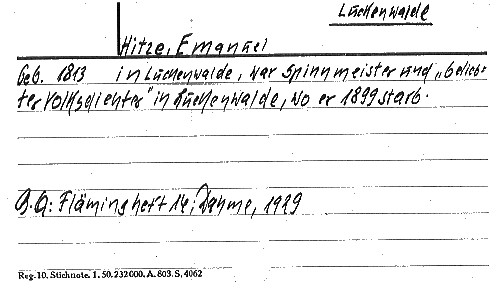 Luckenwalde
Hitze, Emanuel
Geb. 1813 in Luckenwalde, war Spinnmeister und „belieb-
ter Volksdichter" in Luckenwalde, wo er 1899 starb.
B.Q: Flämingheft 14; Dahme, 1929
Reg. 10. Stichnote. 1. 50. 232000. A. 803. S. 4062